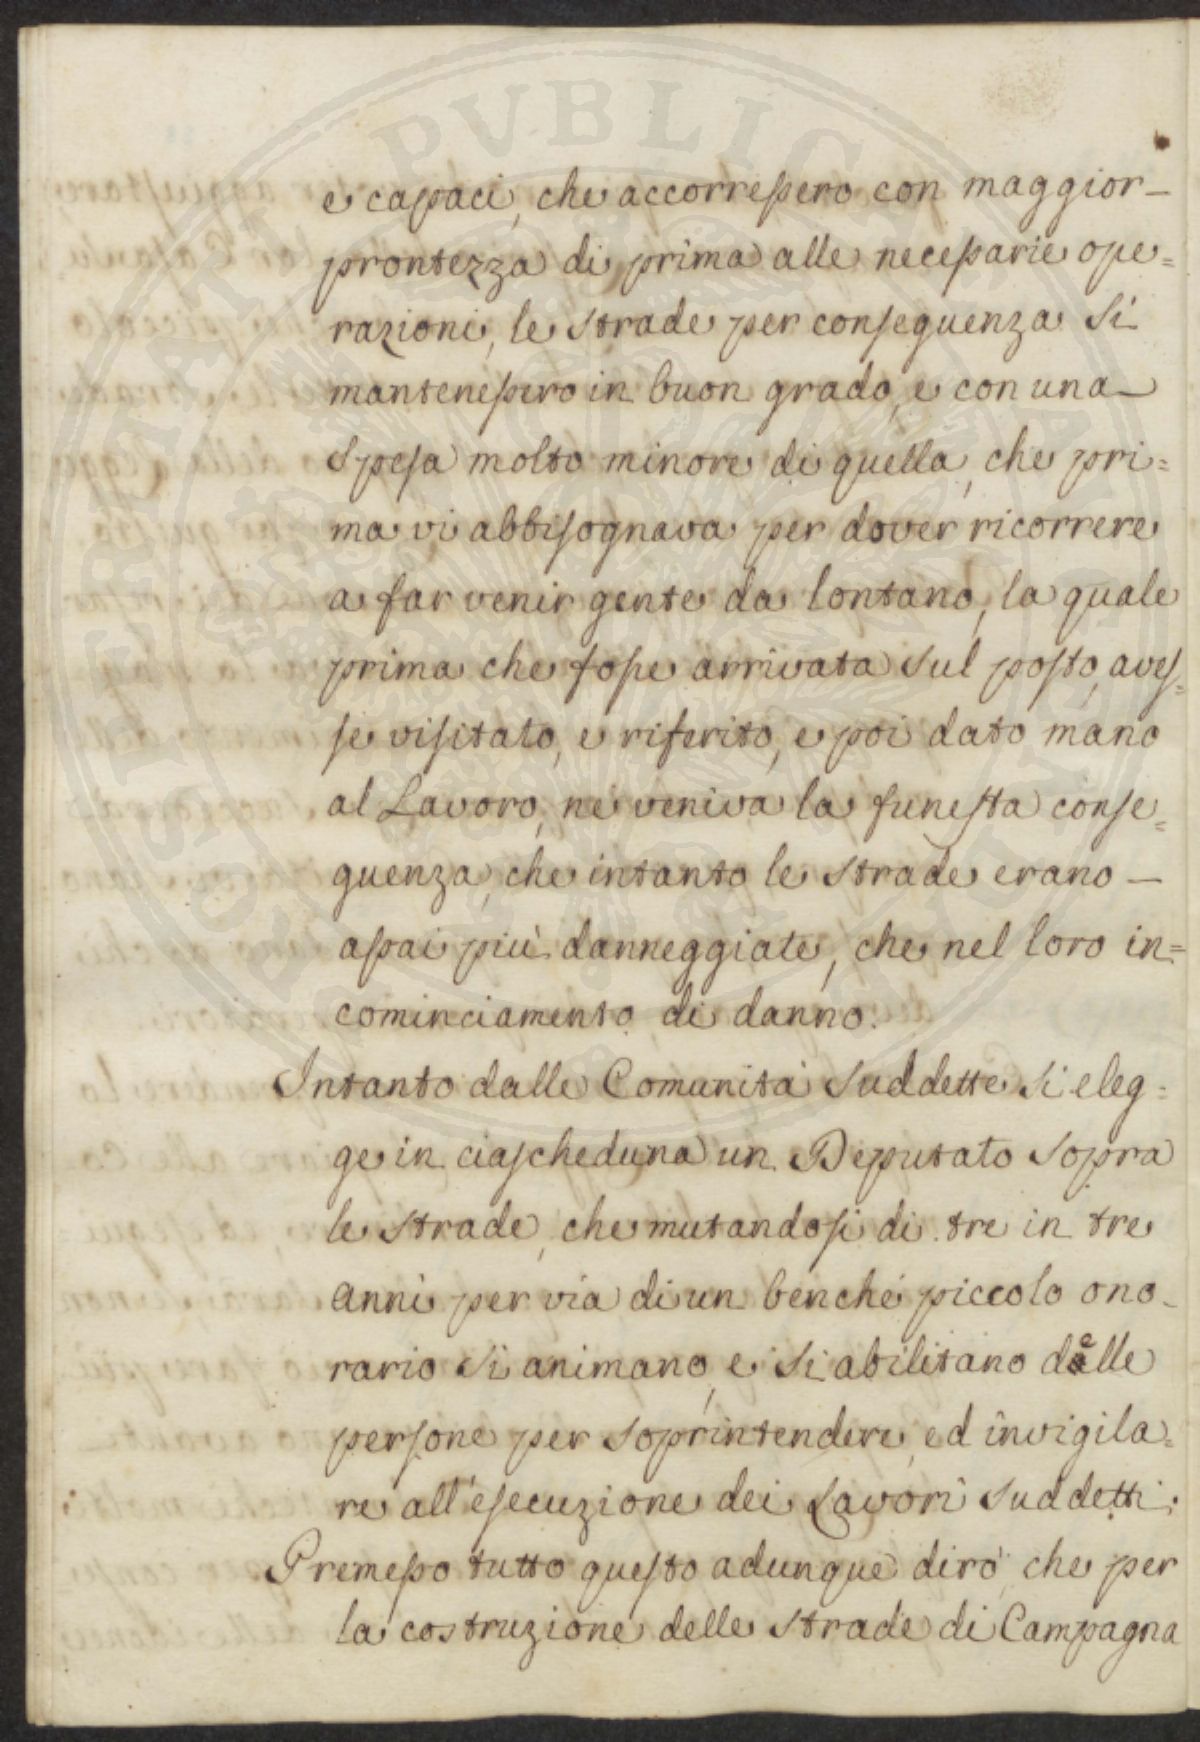 e capaci, che accorressero con maggior—
prontezza di prima alle necessarie ope=
razioni, le strade per conseguenza si
mantenessero in buon grado, e con una—
spesa molto minore di quella, che pri=
ma vi abbisognava per dover ricorrere
a far venir gente da lontano, la quale
prima che fosse arrivata sul posto, aves=
se visitato, e riferito, e poi dato mano
al Lavoro, ne veniva la funesta conse=
guenza, che intanto le strade erano —
assai più danneggiate, che nel loro in=
cominciamento di danno.
Intanto dalle Comunità suddette si eleg=
ge in ciascheduna un Deputato sopra
le strade, che mutandosi di tre in tre
anni per via di un benchè piccolo ono=
rario si animano, e si abilitano delle
persone per soprintendere, ed invigila=
re all'esecuzione dei Lavori suddetti.
Premesso tutto questo adunque dirò, che per
la costruzione delle strade di Campagna